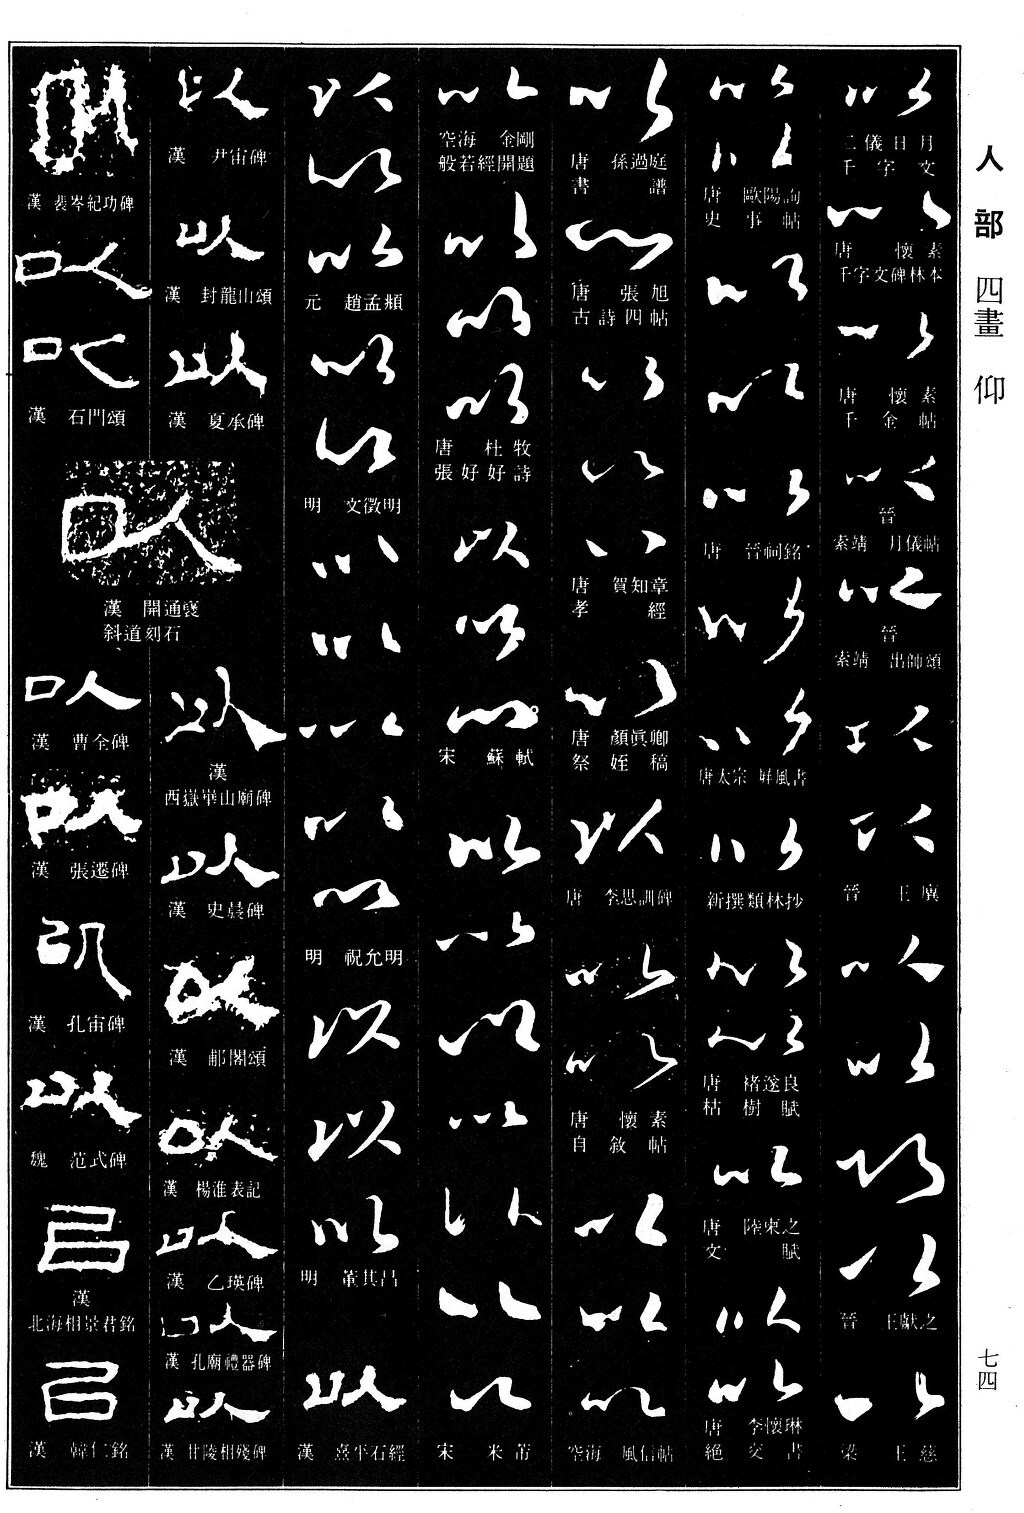 人部 四畫 仰
七四
二儀日月
千字文
唐 懷素
千字文碑林本
唐 懷素
千金帖
晉
索靖 月儀帖
晉
索靖 出師頌
晉 王廙
晉 王獻之
梁 王慈
唐 歐陽詢
史事帖
唐 晉祠銘
唐太宗 屛風書
新撰類林抄
唐 褚遂良
枯樹賦
唐 陸柬之
文賦
唐 李懷琳
絕交書
唐 孫過庭
書譜
唐 張旭
古詩四帖
唐 賀知章
孝經
唐 顏眞卿
祭姪稿
唐 李思訓碑
唐 懷素
自敘帖
空海 風信帖
空海 金剛
般若經開題
唐 杜牧
張好好詩
宋 蘇軾
宋 米芾
元 趙孟頫
明 文徵明
明 祝允明
明 董其昌
漢 熹平石經
漢 尹宙碑
漢 封龍山頌
漢 夏承碑
漢
西嶽華山廟碑
漢 史晨碑
漢 郙閣頌
漢 楊淮表記
漢 乙瑛碑
漢 孔廟禮器碑
漢 甘陵相殘碑
漢 裴岑紀功碑
漢 石門頌
漢 開通褒
斜道刻石
漢 曹全碑
漢 張遷碑
漢 孔宙碑
魏 范式碑
漢
北海相景君銘
漢 韓仁銘